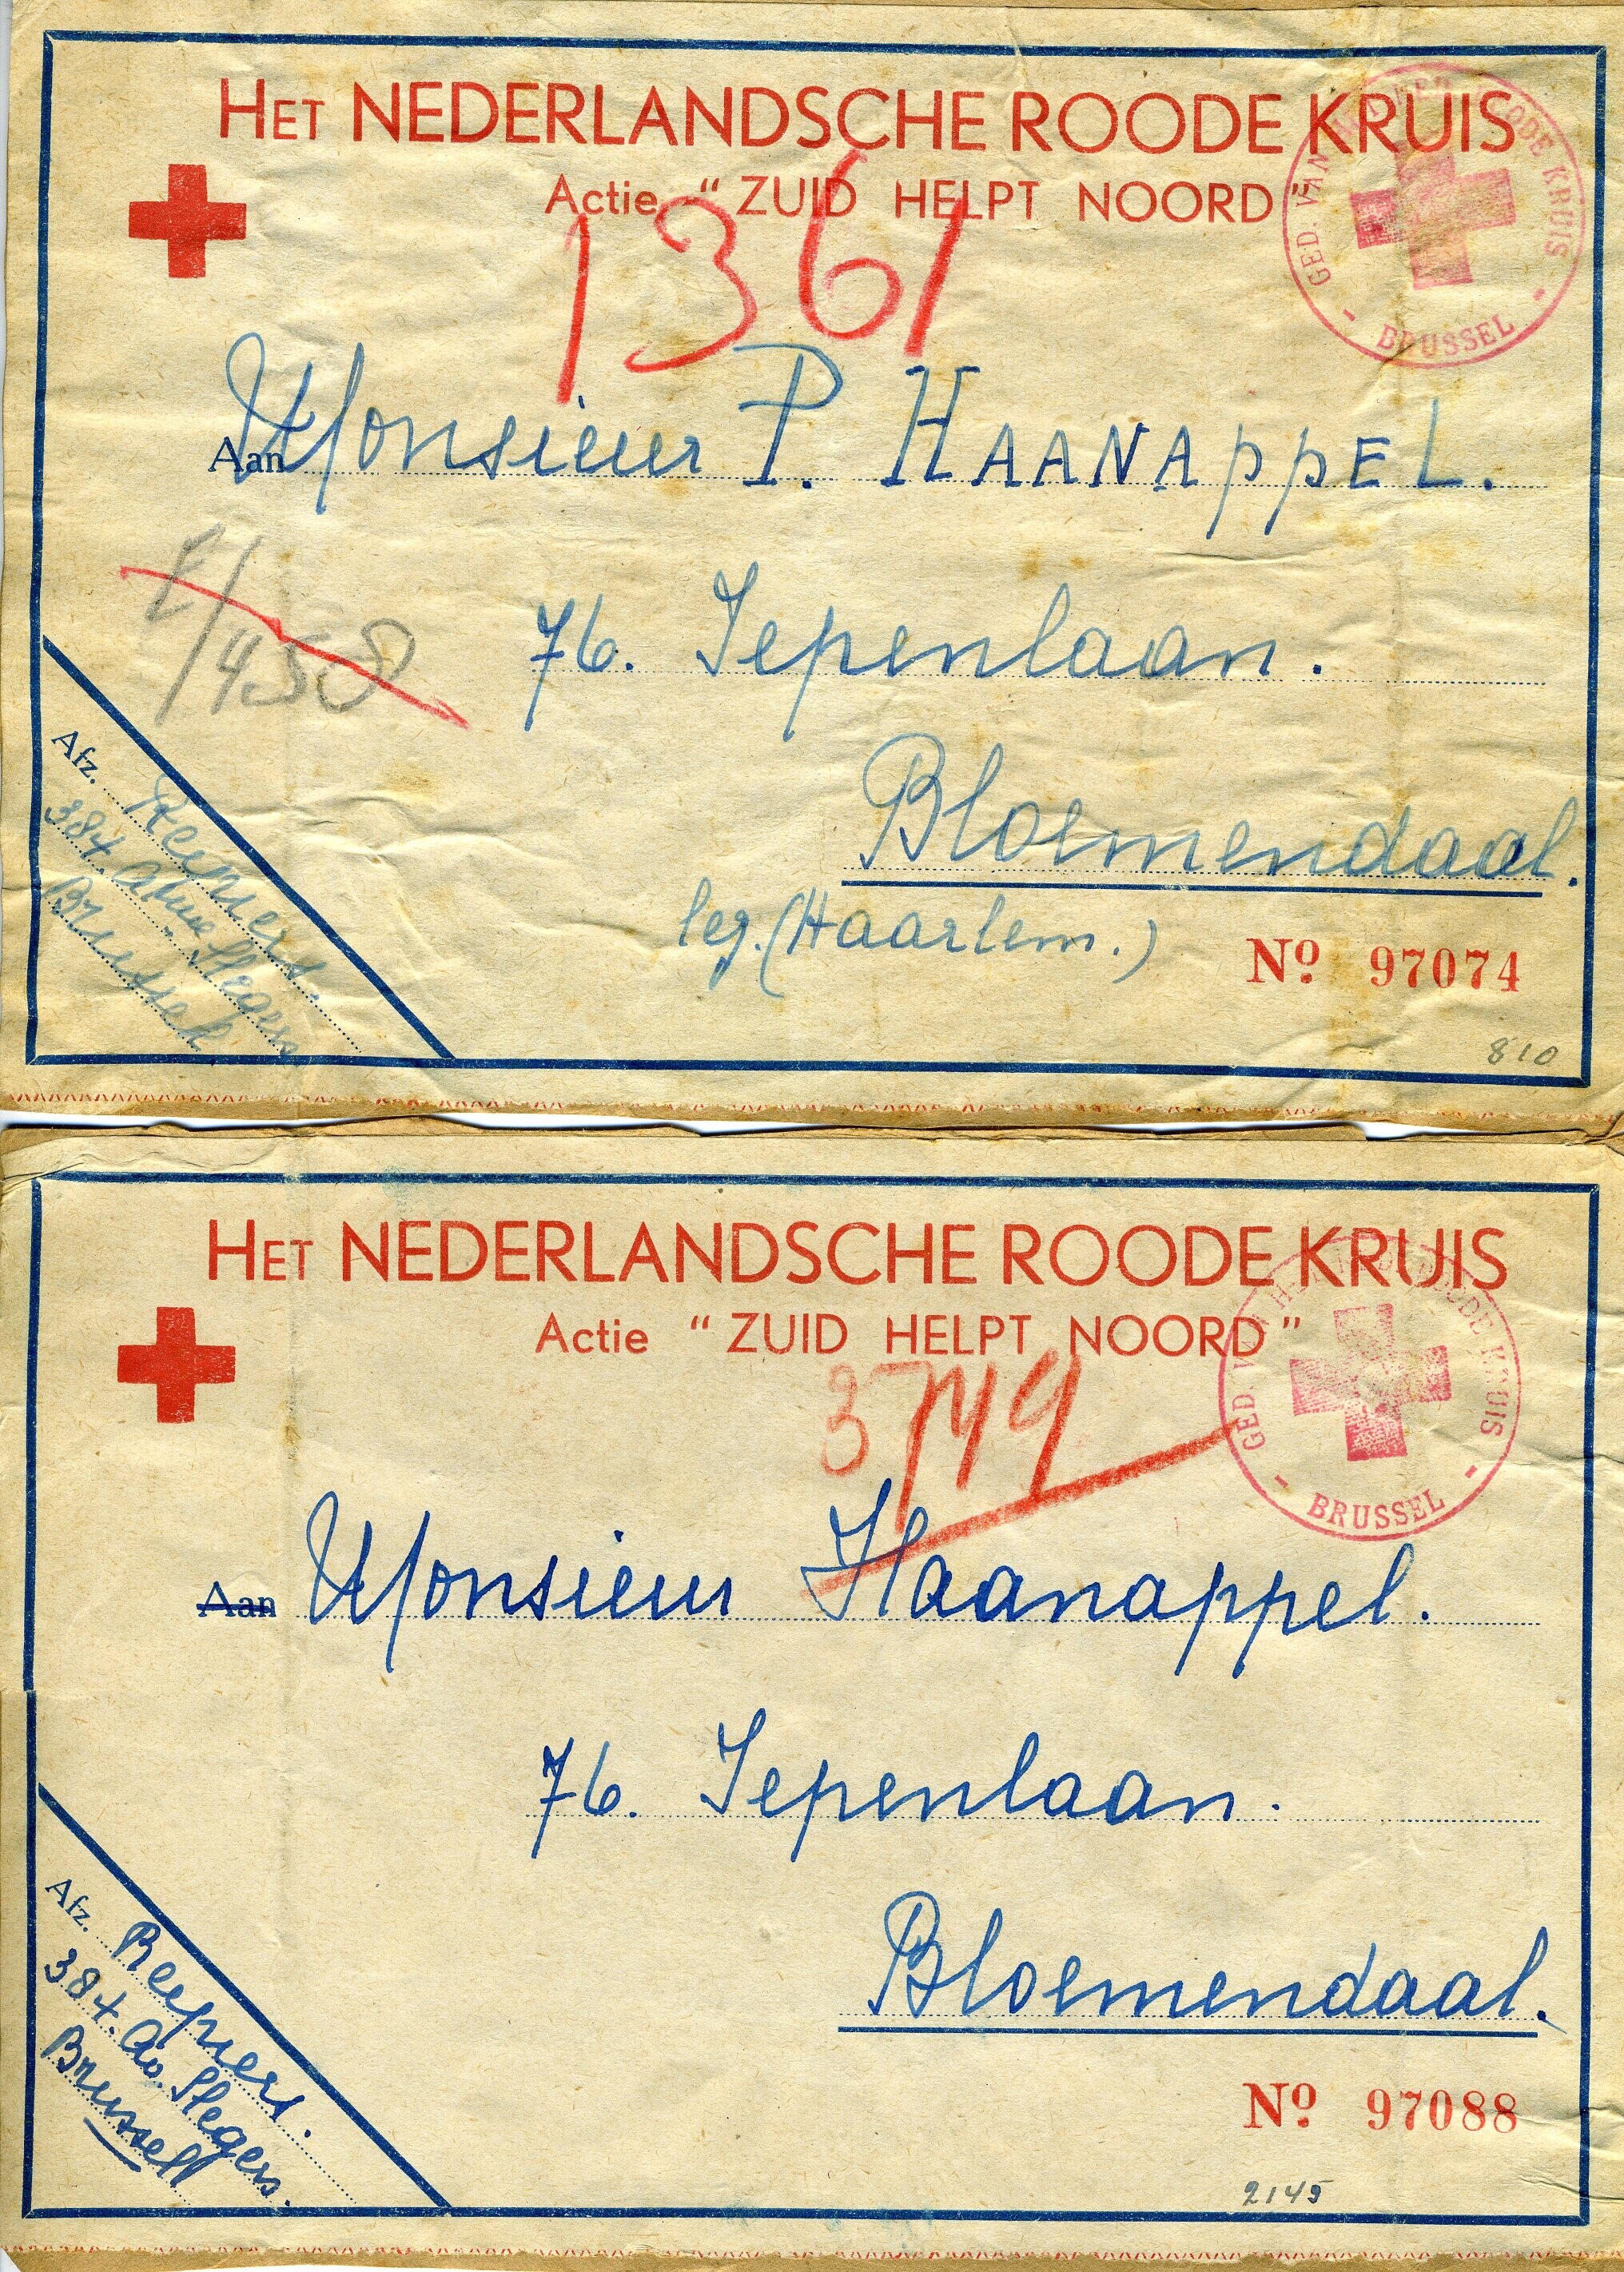 HET NEDERLANDSCHE ROODE KRUIS
Actie "ZUID HELPT NOORD"
GED. VAN HET NED. ROODE KRUIS
- BRUSSEL -
1361
Aan Monsieur P. HAANAppEL.
76. Iepenlaan.
458
Bloemendaal.
leg. (Haarlem.)
Afz. Reepiers.
384. Slegers
Brussel
Nº 97074
810
HET NEDERLANDSCHE ROODE KRUIS
Actie "ZUID HELPT NOORD"
GED. VAN HET NED. ROODE KRUIS
- BRUSSEL -
3749
Aan Monsieur Haanappel.
76. Iepenlaan.
Bloemendaal.
Afz. Reepiers.
384. Av. Slegers.
Brussell
Nº 97088
2145